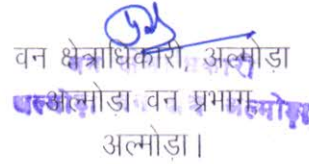 वन क्षेत्राधिकारी, अल्मोड़ा
अल्मोड़ा वन प्रभाग
अल्मोड़ा।